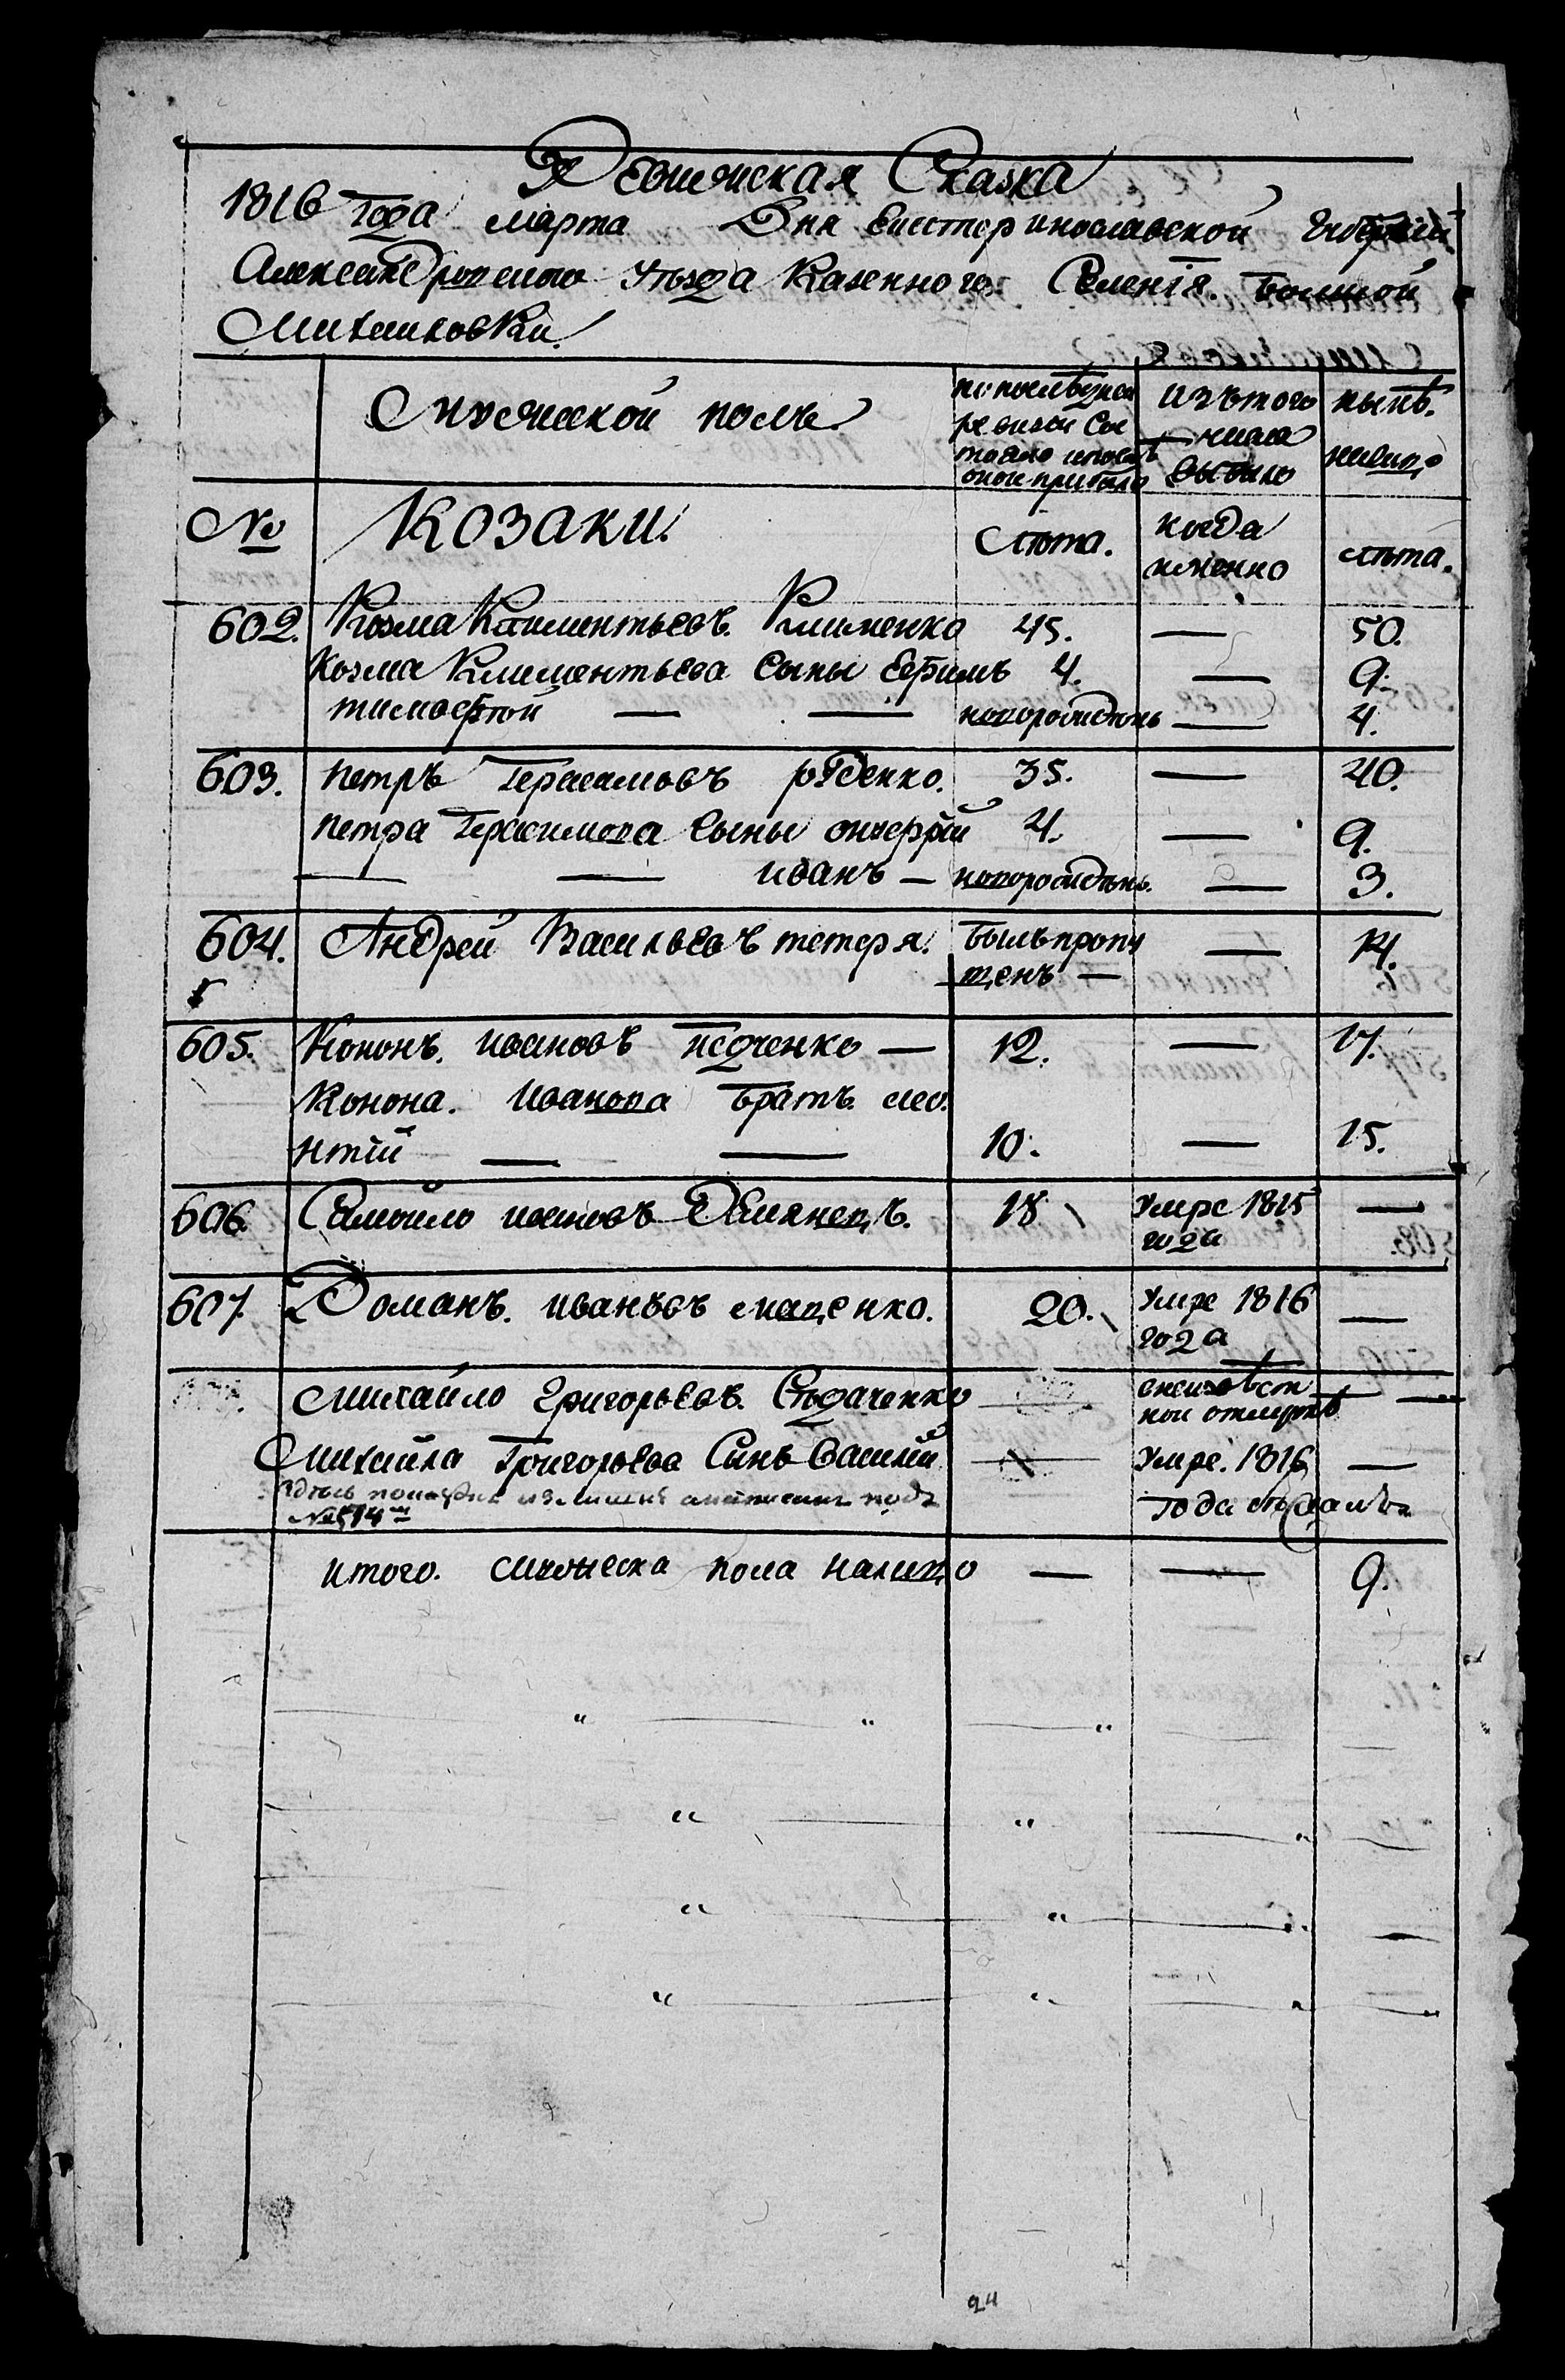 Ревижская Сказка
1816 года марта Дня Екатеринославской Губернии
Александровского уѣзда Казенного Селенія Большой
Михайловки.
Мужеской полъ
по последней ревизіи состояло и после оной прибыло
изътого числа выбыло
нынѣ налицо
№ Козаки.
Лѣта. когда именно лѣта.
602. Козма Климентьевъ Клименко 45. — 50.
Козма Климентьева Сыны Ефимъ 4. — 9.
тимофѣй — — новорожденъ — 4.
603. петръ Герасимовъ рѣденко. 35. — 40.
петра Герасимова Сыны онуфрій 4. — 9.
— — иванъ — новорожденъ. — 3.
604. Андрей Васильевъ тетеря. былъ пропущенъ — — 14.
605. Кононъ. ивановъ педченко — 12. — 17.
Конона. Иванова братъ лео
нтій — — 10. — 15.
606. Самойло ивановъ Демянецъ. 18 умре 1815 года —
607. Романъ. ивановъ маценко. 20. умре 1816 года —
Михайло Григорьевъ. Сѣдаченко —
Михайла Григорьева Сынъ Василій умре. 1816 —
года
№ 514
итого. мужеска пола налицо — — 9.